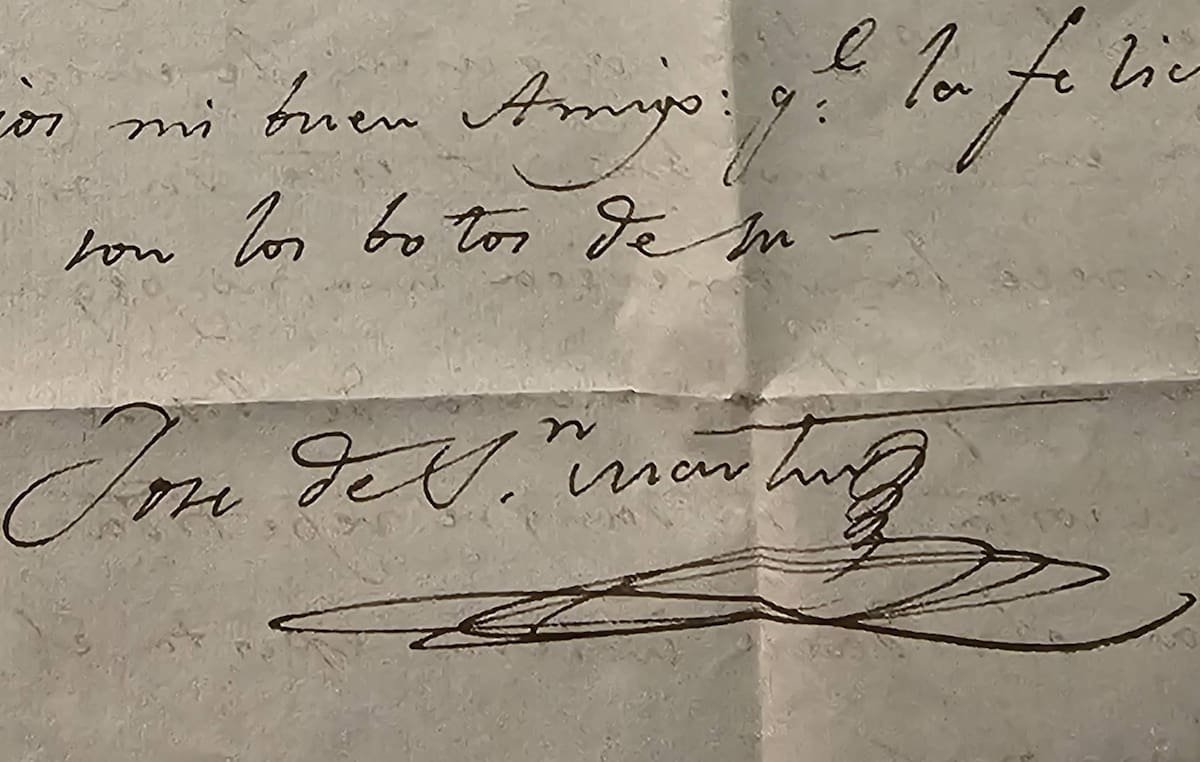 ios mi buen Amigo: q.e la felic
son los botos de su —
Jose de S.n Martin